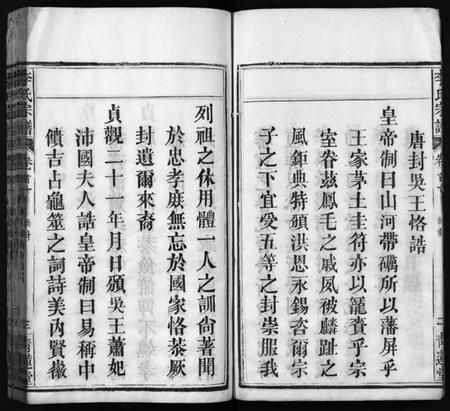 李氏宗譜
卷首
唐封吳王恪誥
皇帝制曰山河帶礪所以藩屏乎
王家茅土圭符亦以寵賚乎宗
室眷茲鳳毛之戚夙被麟趾之
風鉅典特頒洪恩永錫咨爾宗
子之下宜爰五等之封崇服我
列祖之休用體一人之訓尙著聞
於忠孝庭無忘於國家恪恭厥
封遺爾來裔
貞觀二十一年月日頒吳王蕭妃
沛國夫人誥皇帝制曰易稱中
饋吉占龜筮之詞詩美內賢徽
李氏宗譜
青蓮堂